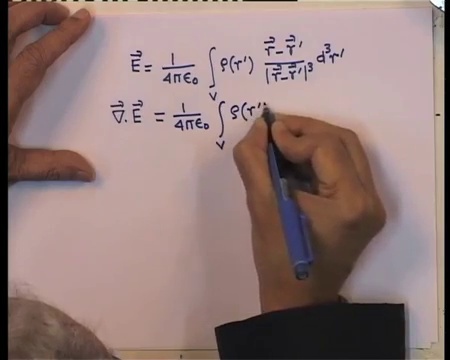 \vec{E} = \frac{1}{4\pi\epsilon_0} \int_V \rho(r') \frac{\vec{r}-\vec{r}'}{|\vec{r}-\vec{r}'|^3} d^3r'
\vec{\nabla}.\vec{E} = \frac{1}{4\pi\epsilon_0} \int_V \rho(r')